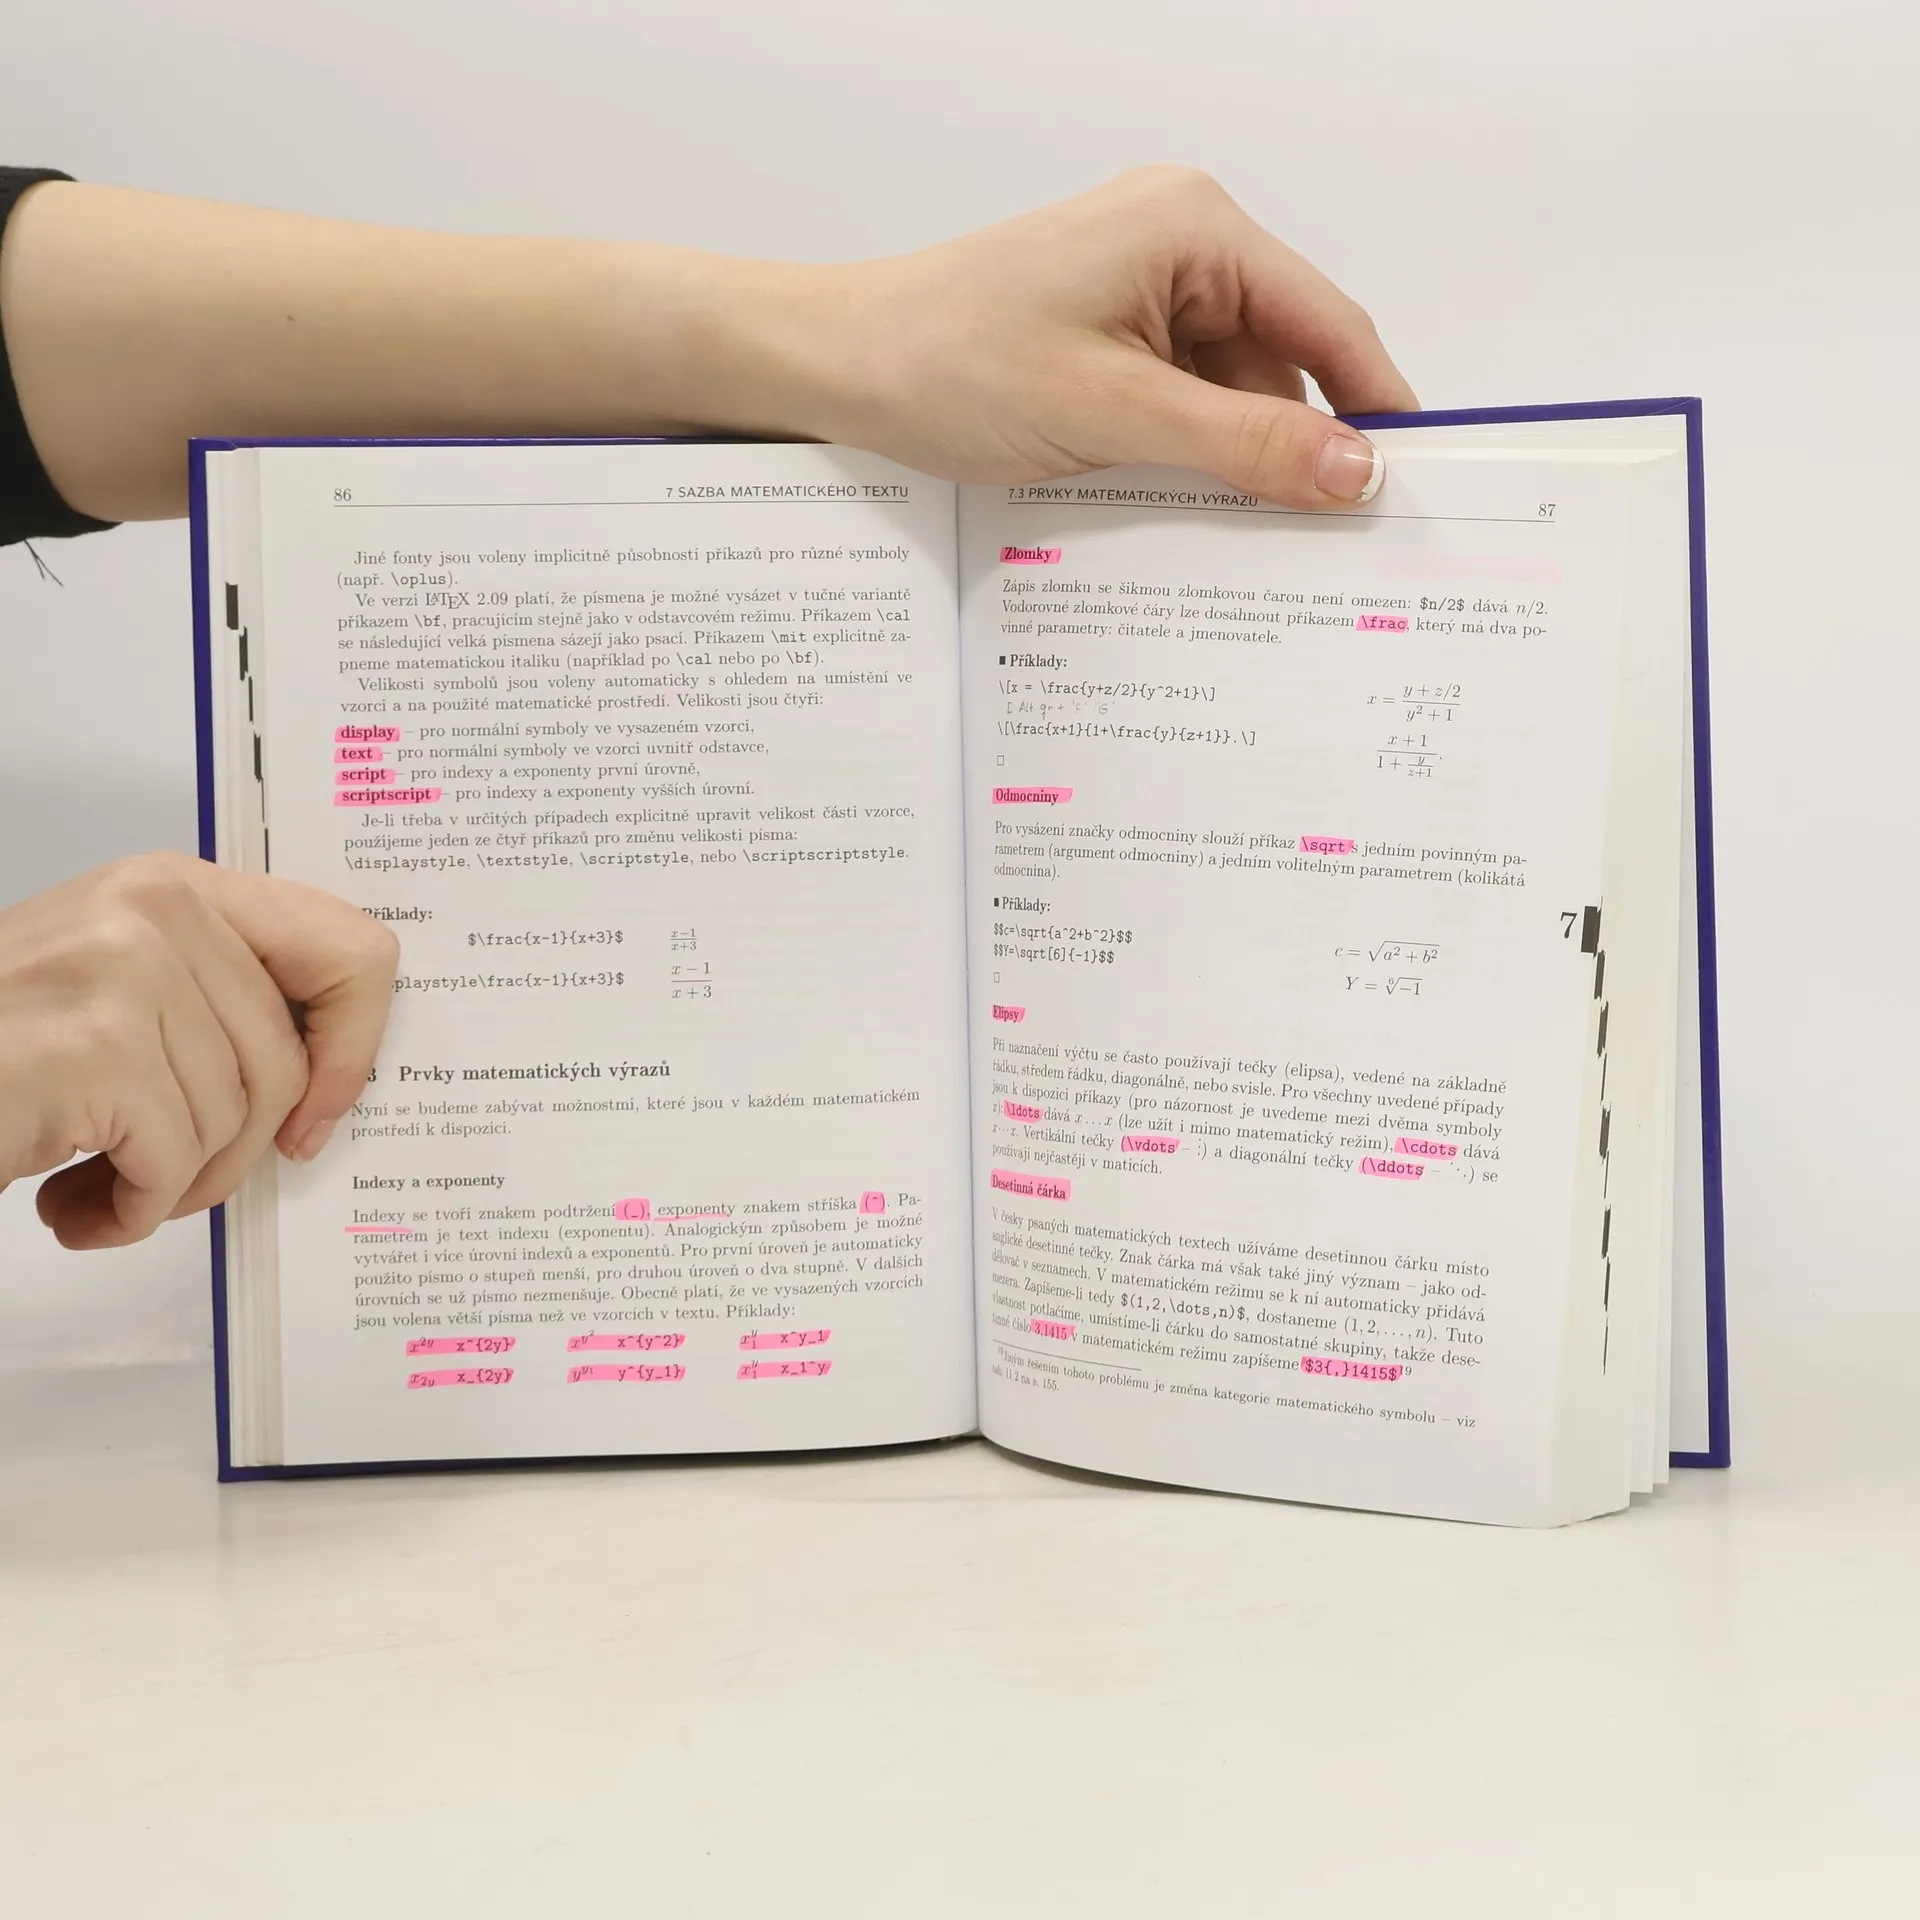 86
7 SAZBA MATEMATICKÉHO TEXTU
Jiné fonty jsou voleny implicitně působností příkazů pro různé symboly
(např. \oplus).
Ve verzi LATEX 2.09 platí, že písmena je možné vysázet v tučné variantě
příkazem \bf, pracujícím stejně jako v odstavcovém režimu. Příkazem \cal
se následující velká písmena sázejí jako psací. Příkazem \mit explicitně za-
pneme matematickou italiku (například po \cal nebo po \bf).
Velikosti symbolů jsou voleny automaticky s ohledem na umístění ve
vzorci a na použité matematické prostředí. Velikosti jsou čtyři:
display – pro normální symboly ve vysazeném vzorci,
text – pro normální symboly ve vzorci uvnitř odstavce,
script – pro indexy a exponenty první úrovně,
scriptscript – pro indexy a exponenty vyšších úrovní.
Je-li třeba v určitých případech explicitně upravit velikost části vzorce,
použijeme jeden ze čtyř příkazů pro změnu velikosti písma:
\displaystyle, \textstyle, \scriptstyle, nebo \scriptscriptstyle.
Příklady:
$\frac{x-1}{x+3}$ x−1/x+3
playstyle\frac{x-1}{x+3}$ x − 1/x + 3
3 Prvky matematických výrazů
Nyní se budeme zabývat možnostmi, které jsou v každém matematickém
prostředí k dispozici.
Indexy a exponenty
Indexy se tvoří znakem podtržení (_), exponenty znakem stříška (^). Pa-
rametrem je text indexu (exponentu). Analogickým způsobem je možné
vytvářet i více úrovní indexů a exponentů. Pro první úroveň je automaticky
použito písmo o stupeň menší, pro druhou úroveň o dva stupně. V dalších
úrovních se už písmo nezmenšuje. Obecně platí, že ve vysazených vzorcích
jsou volena větší písma než ve vzorcích v textu. Příklady:
x^2y x^{2y} x^y^2 x^{y^2} x^y_1 x^y_1
x_2y x_{2y} y^y_1 y^{y_1} x^y_1 x_1^y
7.3 PRVKY MATEMATICKÝCH VÝRAZŮ
87
Zlomky
Zápis zlomku se šikmou zlomkovou čarou není omezen: $n/2$ dává n/2.
Vodorovné zlomkové čáry lze dosáhnout příkazem \frac, který má dva po-
vinné parametry: čitatele a jmenovatele.
■ Příklady:
\[x = \frac{y+z/2}{y^2+1}\] x = y + z/2 / y² + 1
[ Alt gr + 'F' 'G'
\[\frac{x+1}{1+\frac{y}{z+1}}.\] x + 1 / 1 + y/z+1 .
□
Odmocniny
Pro vysázení značky odmocniny slouží příkaz \sqrt s jedním povinným pa-
rametrem (argument odmocniny) a jedním volitelným parametrem (kolikátá
odmocnina).
■ Příklady:
$$c=\sqrt{a^2+b^2}$$ c = √a² + b²
$$Y=\sqrt[6]{-1}$$ Y = ⁶√−1
□
7
Elipsy
Při naznačení výčtu se často používají tečky (elipsa), vedené na základně
řádku, středem řádku, diagonálně, nebo svisle. Pro všechny uvedené případy
jsou k dispozici příkazy (pro názornost je uvedeme mezi dvěma symboly
x): \ldots dává x…x (lze užít i mimo matematický režim), \cdots dává
x⋯x. Vertikální tečky (\vdots – ⋮) a diagonální tečky (\ddots – ⋱) se
používají nejčastěji v maticích.
Desetinná čárka
V česky psaných matematických textech užíváme desetinnou čárku místo
anglické desetinné tečky. Znak čárka má však také jiný význam – jako od-
dělovač v seznamech. V matematickém režimu se k ní automaticky přidává
mezera. Zapíšeme-li tedy $(1,2,\dots,n)$, dostaneme (1, 2, …, n). Tuto
vlastnost potlačíme, umístíme-li čárku do samostatné skupiny, takže dese-
tinné číslo 3,1415 v matematickém režimu zapíšeme $3{,}1415$¹⁹
¹⁹Jiným řešením tohoto problému je změna kategorie matematického symbolu – viz
tab. 11.2 na s. 155.